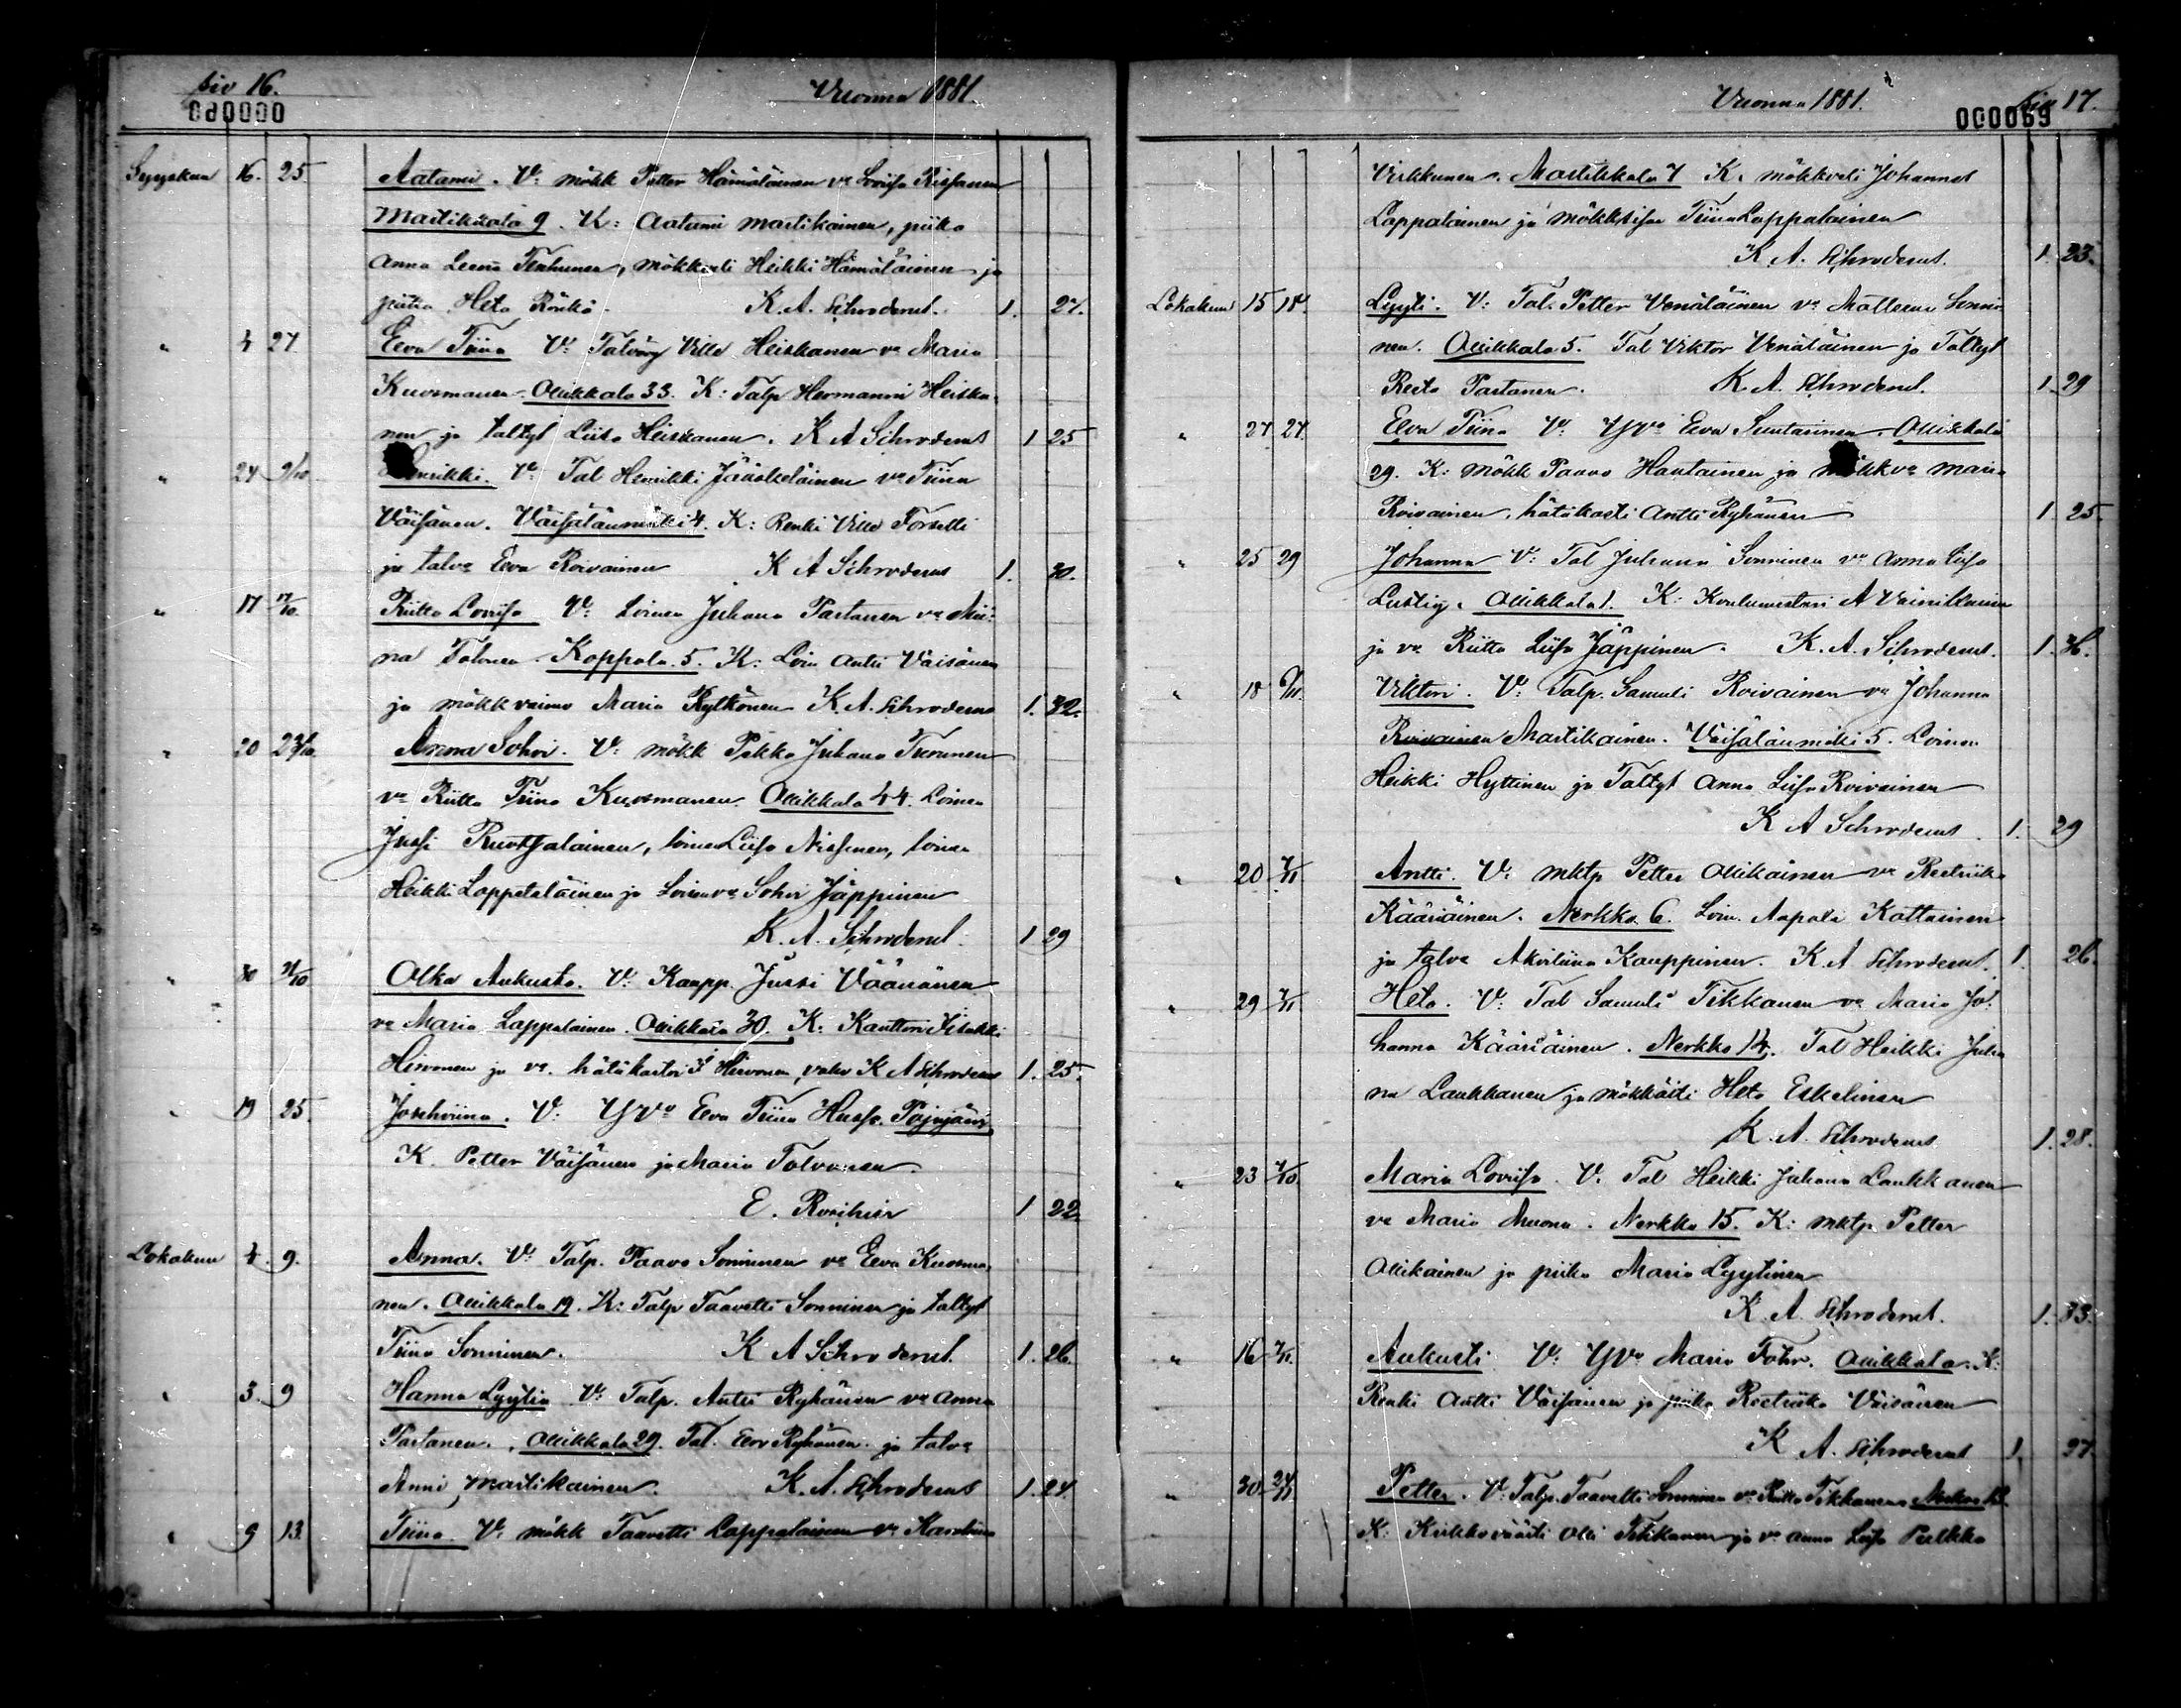 siv 16.
Vuonna 1881.
000090
Syyskuu 16. 25 Aatami. V: mökk Petter Hämäläinen va Loviisa Rissanen
Martikkala 9. K: Aatami Martikainen, piika
Anna Leena Tenhunen, mökkveli Heikki Hämäläinen ja
piika Heta Rönkö. K. A. Schroderus. 1. 27.
" 4 27 Eeva Tiina V: Talväy Ville Heiskanen va Maria
Kuosmanen Ollikkala 33. K: Talp Hermanni Heiska
nen ja taltyt Liisa Heiskanen. K A Schroderus 1 25
" 24 9/10 Henrikki. V: Tal Henrikki Jääskeläinen va Tiina
Väisänen. Väisälänmäki 4. K: Renki Ville Forselli
ja talva Eeva Roivainen K A Schroderus 1. 30.
" 17 Riitta Loviisa V: Loinen Juhana Partanen va Mii
na Tolonen. Koppola 5. K: Loin Antti Väisänen
ja mökkvaimo Maria Rytkönen K. A. Schroderus 1. 32.
" 20 23/10. Anna Sohvi. V: mökk Pekka Juhana Turunen
va Riitta Tiina Kuosmanen. Ollikkala 44. Loinen
Jussi Ruotsalainen, loinen Liisa Nissinen, loinen
Heikki Lappeteläinen ja Loinenva Sohvi Jäppinen
K. A. Schroderus. 1 29
" 30 Olka Aukusta. V: Kaupp. Jussi Väänänen
va Maria Lappalainen. Ollikkala 30. K: Kanttori Iisakki
Hirvonen ja va. hätäkastoi I Hirvonen, vahv K A Schroderus 1. 25.
" 19 25. Josehviina. V: Yva Eeva Tiina Huss. Pajujärvi
K. Petter Väisänen ja Maria Tolvanen
E. Roschier 1 22.
Lokakuu 4. 9. Anna. V: Talp. Paavo Sonninen va Eeva Kuosma
nen. Ollikkala 19. K: Talp Taavetti Sonninen ja taltyt
Tiina Sonninen. K A Schroderus. 1. 26.
" 3. 9 Hanna Lyytia V: Talp. Antti Ryhänen va Anna
Partanen. Ollikkala 29. Tal. Eero Ryhänen ja talva
Anni Martikainen. K. A. Schroderus 1. 24.
" 9 13. Tiina. V: mökk Taavetti Lappalainen va Karoliina
Vuonna 1881.
siv 17.
000069
Virkkunen. Martikkala 7 K. mökkveli Johannes
Lappalainen ja mökksisar Tiina Lappalainen
K. A. Schroderus. 1. 23.
Lokakuu 15 18. Lyyti. V: Tal. Petter Venäläinen va Matleena Sonni
nen. Ollikkala 5. Tal Viktor Venäläinen ja Taltyt
Reeta Partanen. K. A. Schroderus. 1. 29
" 27 27. Eeva Tiina V: Yva Eeva Suutarinen. Ollikkala
29. K: mökk Paavo Hautainen ja mökkva Maria
Roivainen, hätäkasti Antti Ryhänen 1. 25.
" 25 29 Johanna V: Tal Juhana Sonninen va Anna Liisa
Lustig. Ollikkala 1. K: Koulumestari A Vainikainen
ja va Riitta Liisa Jäppinen. K. A. Schroderus. 1. 36.
" 18 6/11. Viktori. V: Talp. Samuli Roivainen va Johanna
Roivainen Martikainen. Väisälänmäki 5. Loinen
Heikki Hyttinen ja Taltyt Anna Liisa Roivainen
K A Schroderus. 1. 29
" 20 Antti. V: mktp Petter Ollikainen va Reetriika
Kääriäinen. Nerkko 6. Loin. Aapeli Kattainen
ja talva Akviliina Kauppinen. K. A Schroderus. 1. 26.
" 29 Heta. V: Tal Samuli Tikkanen va Maria Jo
hanna Kääriäinen. Nerkko 14. Tal Heikki Juha
na Laukkanen ja mökkäiti Heta Eskelinen
K. A. Schroderus. 1. 28.
" 23 Maria Loviisa. V. Tal Heikki Juhana Laukkanen
va Maria Muona. Nerkko 15. K: mktp Petter
Ollikainen ja piika Maria Lyytinen
K. A. Schroderus. 1. 33.
" 16 Aukusti V: Yva Maria Fohr. Ollikkala. K:
Renki Antti Väisänen ja piika Reetriika Väisänen
K A. Schroderus 1. 27.
" 30. Petter. V: Talp. Taavetti Sonninen va Riitta Tikkanen Nerkko 12.
K: Kirkkovääti Olli Tikkanen ja va Anna Liisa Pulkka